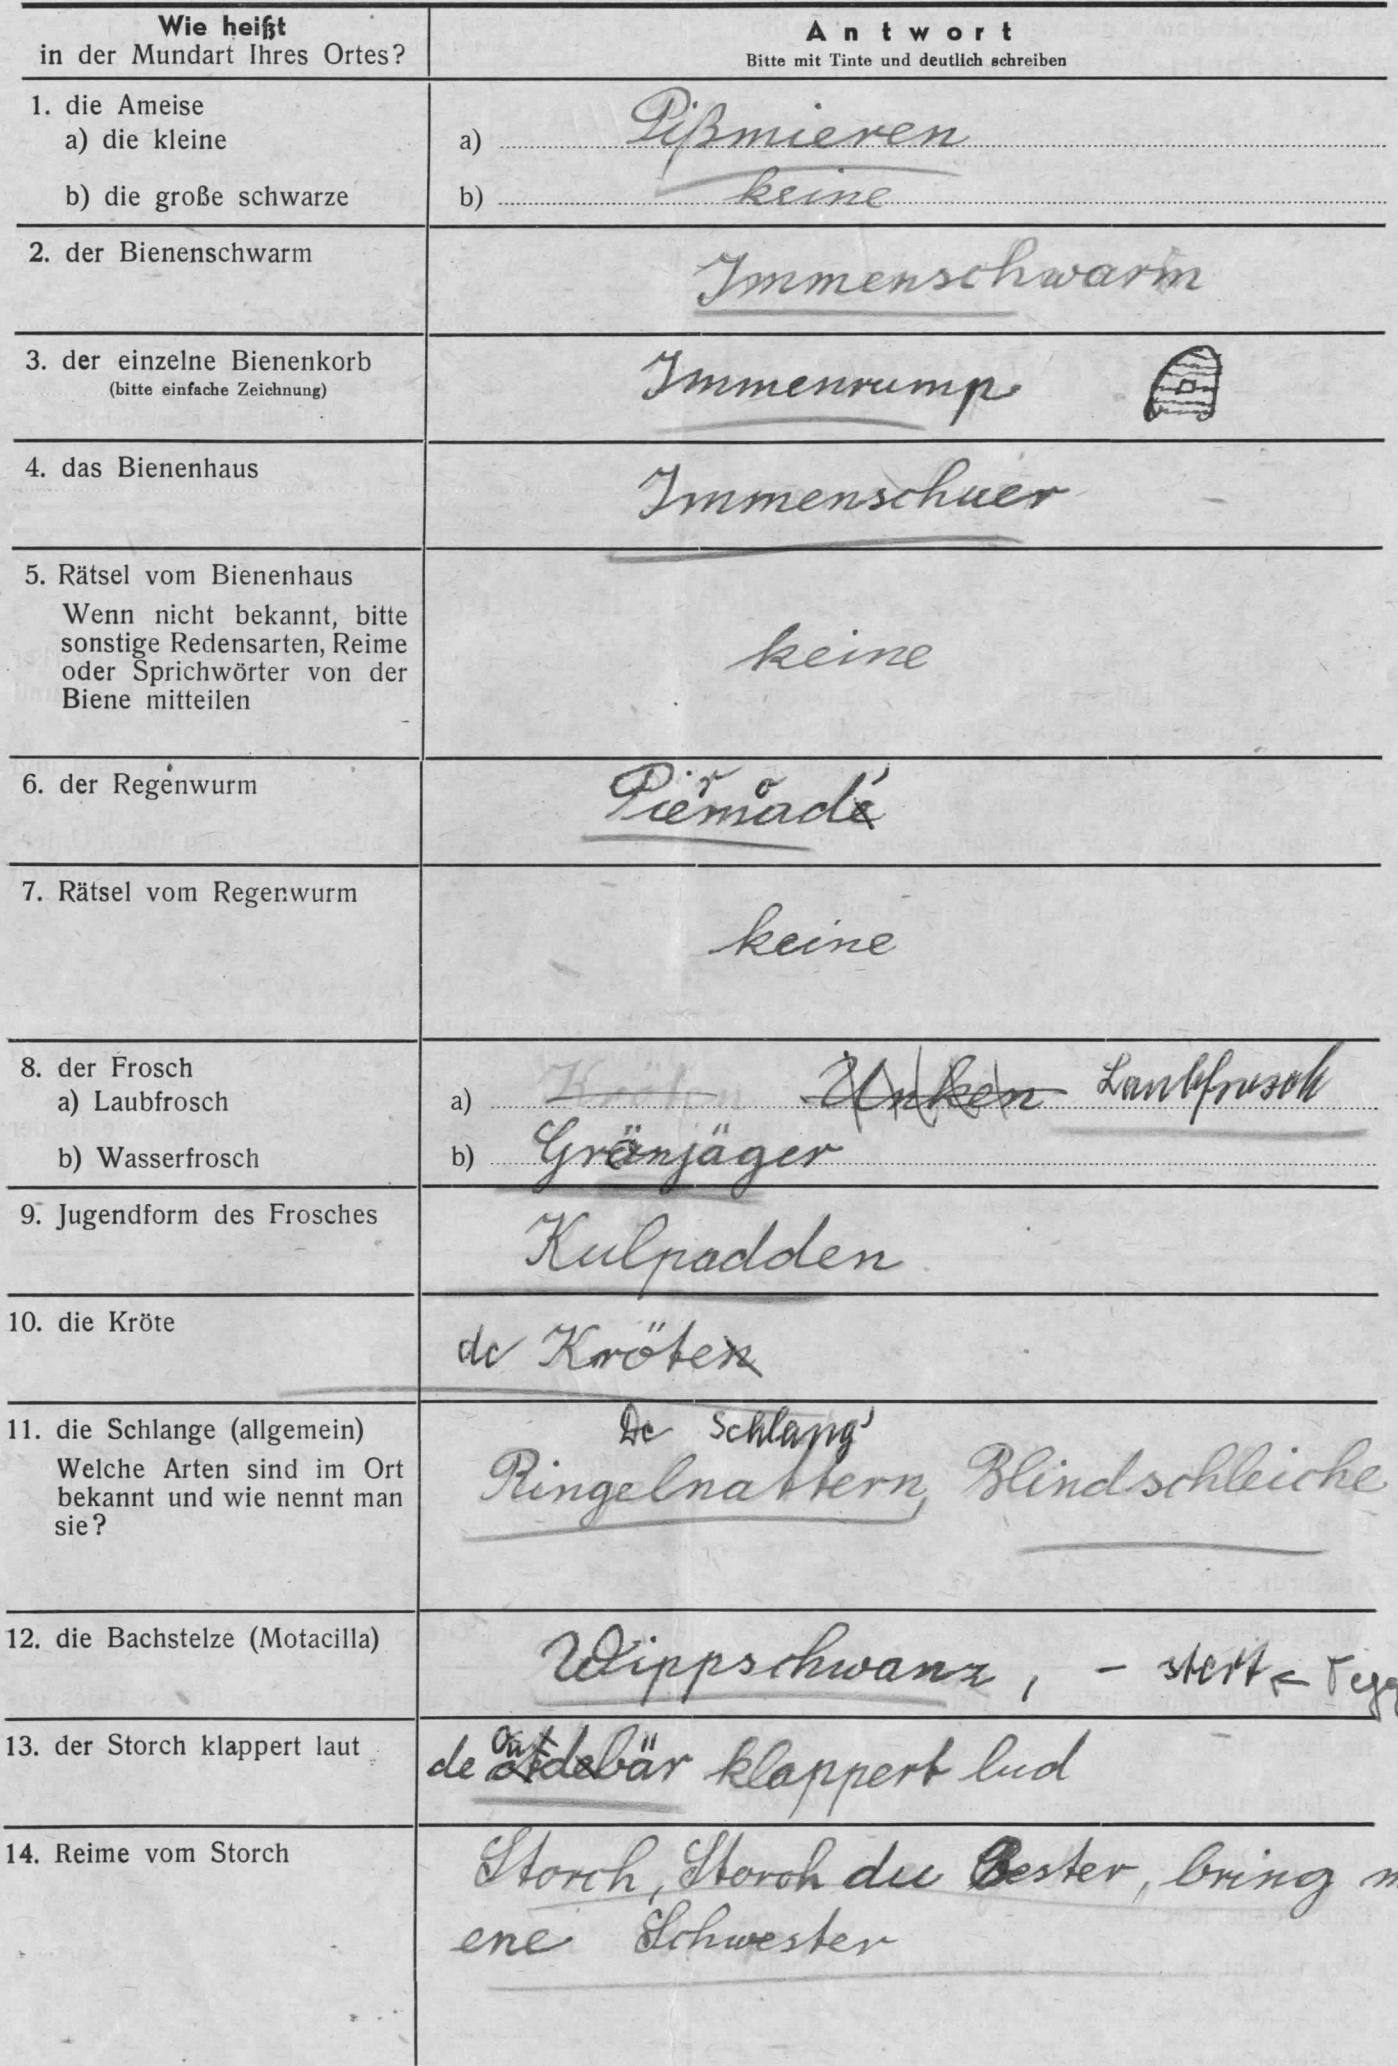 Wie heißt
in der Mundart Ihres Ortes?
Antwort
Bitte mit Tinte und deutlich schreiben
1. die Ameise
a) die kleine
a) Pißmieren
b) die große schwarze
b) keine
2. der Bienenschwarm
Immenschwarm
3. der einzelne Bienenkorb
(bitte einfache Zeichnung)
Immenrump
4. das Bienenhaus
Immenschuer
5. Rätsel vom Bienenhaus
Wenn nicht bekannt, bitte
sonstige Redensarten, Reime
oder Sprichwörter von der
Biene mitteilen
keine
6. der Regenwurm
Piermad'
7. Rätsel vom Regenwurm
keine
8. der Frosch
a) Laubfrosch
a) Kröten Unken Laubfrosch
b) Wasserfrosch
b) Grönjäger
9. Jugendform des Frosches
Kulpadden
10. die Kröte
de Kröte
11. die Schlange (allgemein)
Welche Arten sind im Ort
bekannt und wie nennt man
sie?
De Schlang'
Ringelnattern, Blindschleiche
12. die Bachstelze (Motacilla)
Wippschwanz, - stert
13. der Storch klappert laut
de bär klappert lud
14. Reime vom Storch
Storch, Storch du Bester, bring
ene Schwester